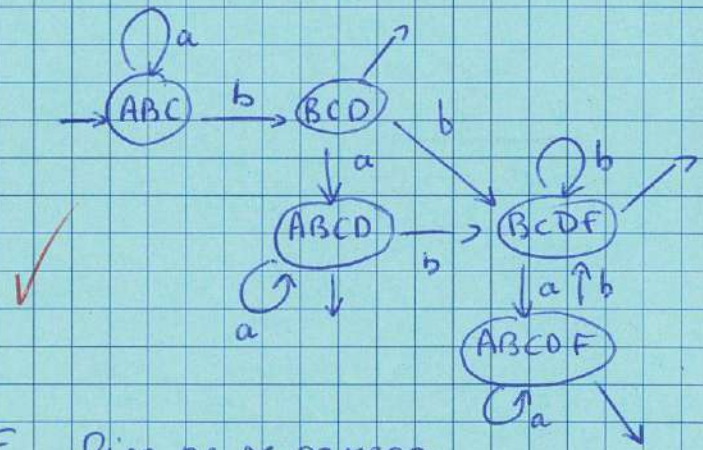 a
ABC b BCD
b
a b
ABCD b BCDF
a a b
ABCDF
a